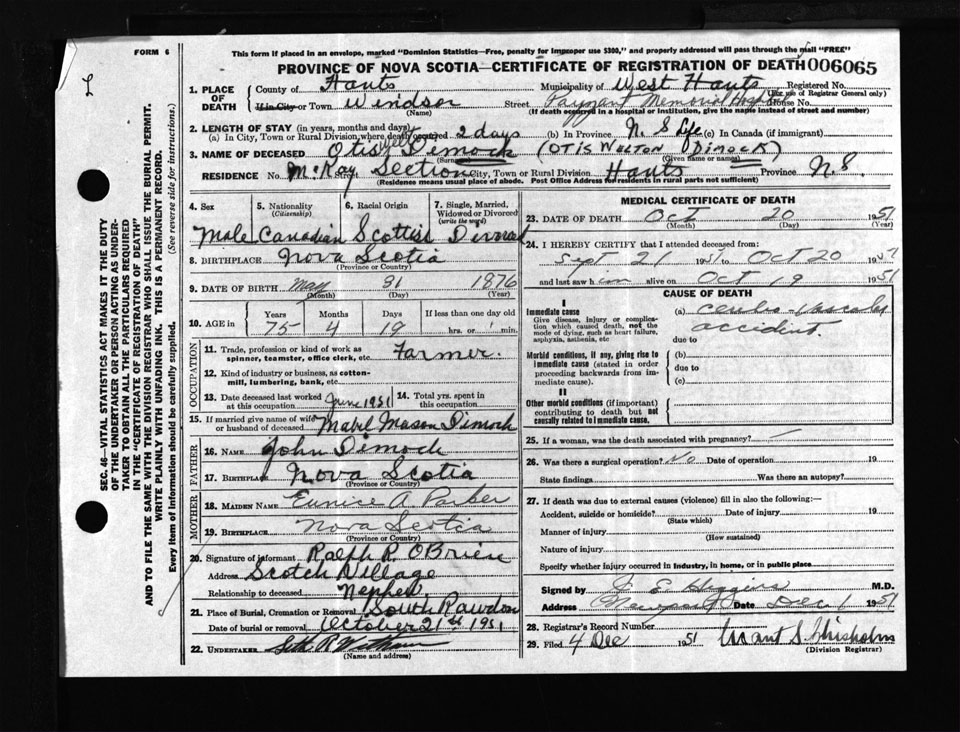 FORM 6
This form if placed in an envelope, marked "Dominion Statistics—Free, penalty for improper use $300," and properly addressed will pass through the mail "FREE"
PROVINCE OF NOVA SCOTIA—CERTIFICATE OF REGISTRATION OF DEATH 006065
1. PLACE OF DEATH
County of Hants Municipality of West Hants Registered No.
(For use of Registrar General only)
If in City or Town Windsor Street Payzant Memorial House No.
(Name) (If death occurred in a hospital or institution, give the name instead of street and number)
2. LENGTH OF STAY (in years, months and days)
(a) In City, Town or Rural Division where death occurred 2 days (b) In Province N. S Life (c) In Canada (if immigrant)
3. NAME OF DECEASED Otis Dimock (OTIS WELTON DIMOCK)
(Surname) (Given name or names)
RESIDENCE No. McKay Section Street City, Town or Rural Division Hants Province N. S.
(Residence means usual place of abode. Post Office Address for residents in rural parts not sufficient)
4. Sex
5. Nationality (Citizenship)
6. Racial Origin
7. Single, Married, Widowed or Divorced (write the word)
Male Canadian Scottish Divorced
8. BIRTHPLACE Nova Scotia
(Province or Country)
9. DATE OF BIRTH May 31 1876
(Month) (Day) (Year)
10. AGE in
Years Months Days If less than one day old
75 4 19 hrs. or min.
OCCUPATION
11. Trade, profession or kind of work as spinner, teamster, office clerk, etc. Farmer.
12. Kind of industry or business, as cotton-mill, lumbering, bank, etc.
13. Date deceased last worked at this occupation June 1951
14. Total yrs. spent in this occupation
15. If married give name of wife or husband of deceased Mabel Mason Dimock
FATHER
16. NAME John Dimock
17. BIRTHPLACE Nova Scotia
(Province or Country)
MOTHER
18. MAIDEN NAME Eunice A Parker
19. BIRTHPLACE Nova Scotia
(Province or Country)
20. Signature of informant Ralph R. O'Brien
Address Scotch Village
Relationship to deceased Nephew
21. Place of Burial, Cremation or Removal South Rawdon
Date of burial or removal October 21st 1951
22. UNDERTAKER
(Name and address)
MEDICAL CERTIFICATE OF DEATH
23. DATE OF DEATH Oct 20 1951
(Month) (Day) (Year)
24. I HEREBY CERTIFY that I attended deceased from:
Sept 21 1951 to Oct 20 1951
and last saw him alive on Oct 19 1951
CAUSE OF DEATH
I
Immediate cause
Give disease, injury or complication which caused death, not the mode of dying, such as heart failure, asphyxia, asthenia, etc
(a) cerebro-vascular
accident
due to
Morbid conditions, if any, giving rise to immediate cause (stated in order proceeding backwards from immediate cause).
(b)
due to
(c)
II
Other morbid conditions (if important) contributing to death but not causally related to immediate cause.
25. If a woman, was the death associated with pregnancy?
26. Was there a surgical operation? No Date of operation 19
State findings Was there an autopsy?
27. If death was due to external causes (violence) fill in also the following:—
Accident, suicide or homicide? Date of injury 19
(State which)
Manner of injury
(How sustained)
Nature of injury
Specify whether injury occurred in industry, in home, or in public place
Signed by J. E. Higgins M.D.
Address Newport Date Dec 1 1951
28. Registrar's Record Number
29. Filed 4 Dec 1951 Grant S. Chisholm
(Division Registrar)
SEC. 46—VITAL STATISTICS ACT MAKES IT THE DUTY
OF THE UNDERTAKER OR PERSON ACTING AS UNDER-
TAKER TO OBTAIN ALL THE PARTICULARS REQUIRED
IN THE "CERTIFICATE OF REGISTRATION OF DEATH"
AND TO FILE THE SAME WITH THE DIVISION REGISTRAR WHO SHALL ISSUE THE BURIAL PERMIT.
WRITE PLAINLY WITH UNFADING INK. THIS IS A PERMANENT RECORD.
Every item of Information should be carefully supplied. (See reverse side for instructions.)